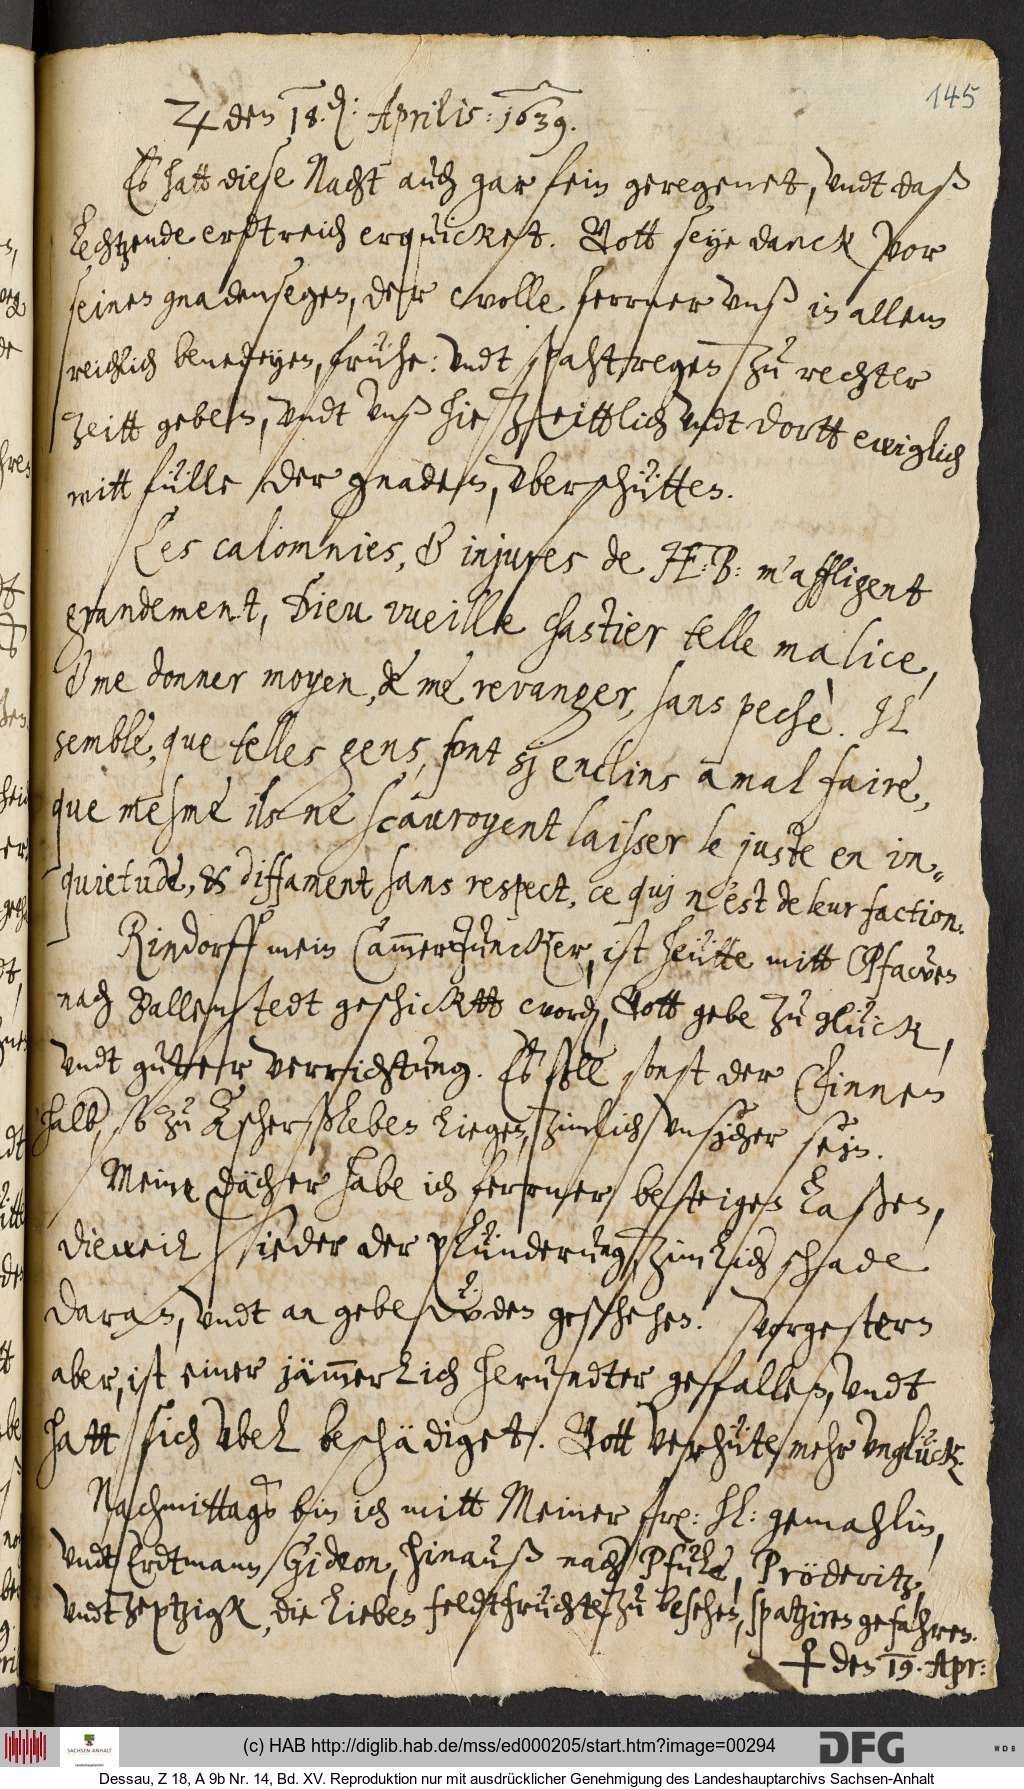 145
♃ den 18.d: Aprilis: 1639.
Es hatt diese Nacht auch gar fein geregenet, undt daß
lechtzende erdtreich erquicket. Gott seye danck vor
seinen gnadensegen, der wolle ferrner unß in allem
reichlich benedeyen, frühe: undt spahtregen zu rechter
zeitt geben, undt unß hie zeittlich undt dortt ewiglich
mitt fülle der gnaden, uberschütten.
Les calomnies, & injures de H: B: m'affligent
grandement, Dieu vueille chastier telle malice,
& me donner moyen, de me revanger, sans pechè. Il
semble, que telles gens, sont sj enclins a mal faire,
que mesme ils ne scauroyent laisser le juste en in„
quietude, & diffament sans respect, ce quj n'est de leur faction.
Rindorff mein Cammerjuncker, ist heütte mitt Pfawen
nach Ballenstedt geschicktt word, Gott gebe zu glück,
undt guter verrichtung. Es soll sonst der Finnen
halb, so zu Aschersleben liegen, zimlich unsicher sein.
Meine Dächer habe ich ferrner besteigen laßen,
dieweil sieder der plünderung, zimlich schade
daran, undt an gebeüden geschehen. Vorgestern
aber, ist einer jämmerlich herundter gefallen, undt
hatt sich ubel beschädiget. Gott verhüte mehr unglück.
Nachmittags bin ich mitt Meiner fr: hl: gemahlin,
undt Erdtmann Gideon, hinauß nach Pfuhle, Pröderitz,
undt Zeptzigk, die lieben feldtfrüchte zu besehen, spatziren gefahren.
♀ den 19. Apr:
(c) HAB http://diglib.hab.de/mss/ed000205/start.htm?image=00294
SACHSEN-ANHALT
DFG
WDB
Dessau, Z 18, A 9b Nr. 14, Bd. XV. Reproduktion nur mit ausdrücklicher Genehmigung des Landeshauptarchivs Sachsen-Anhalt